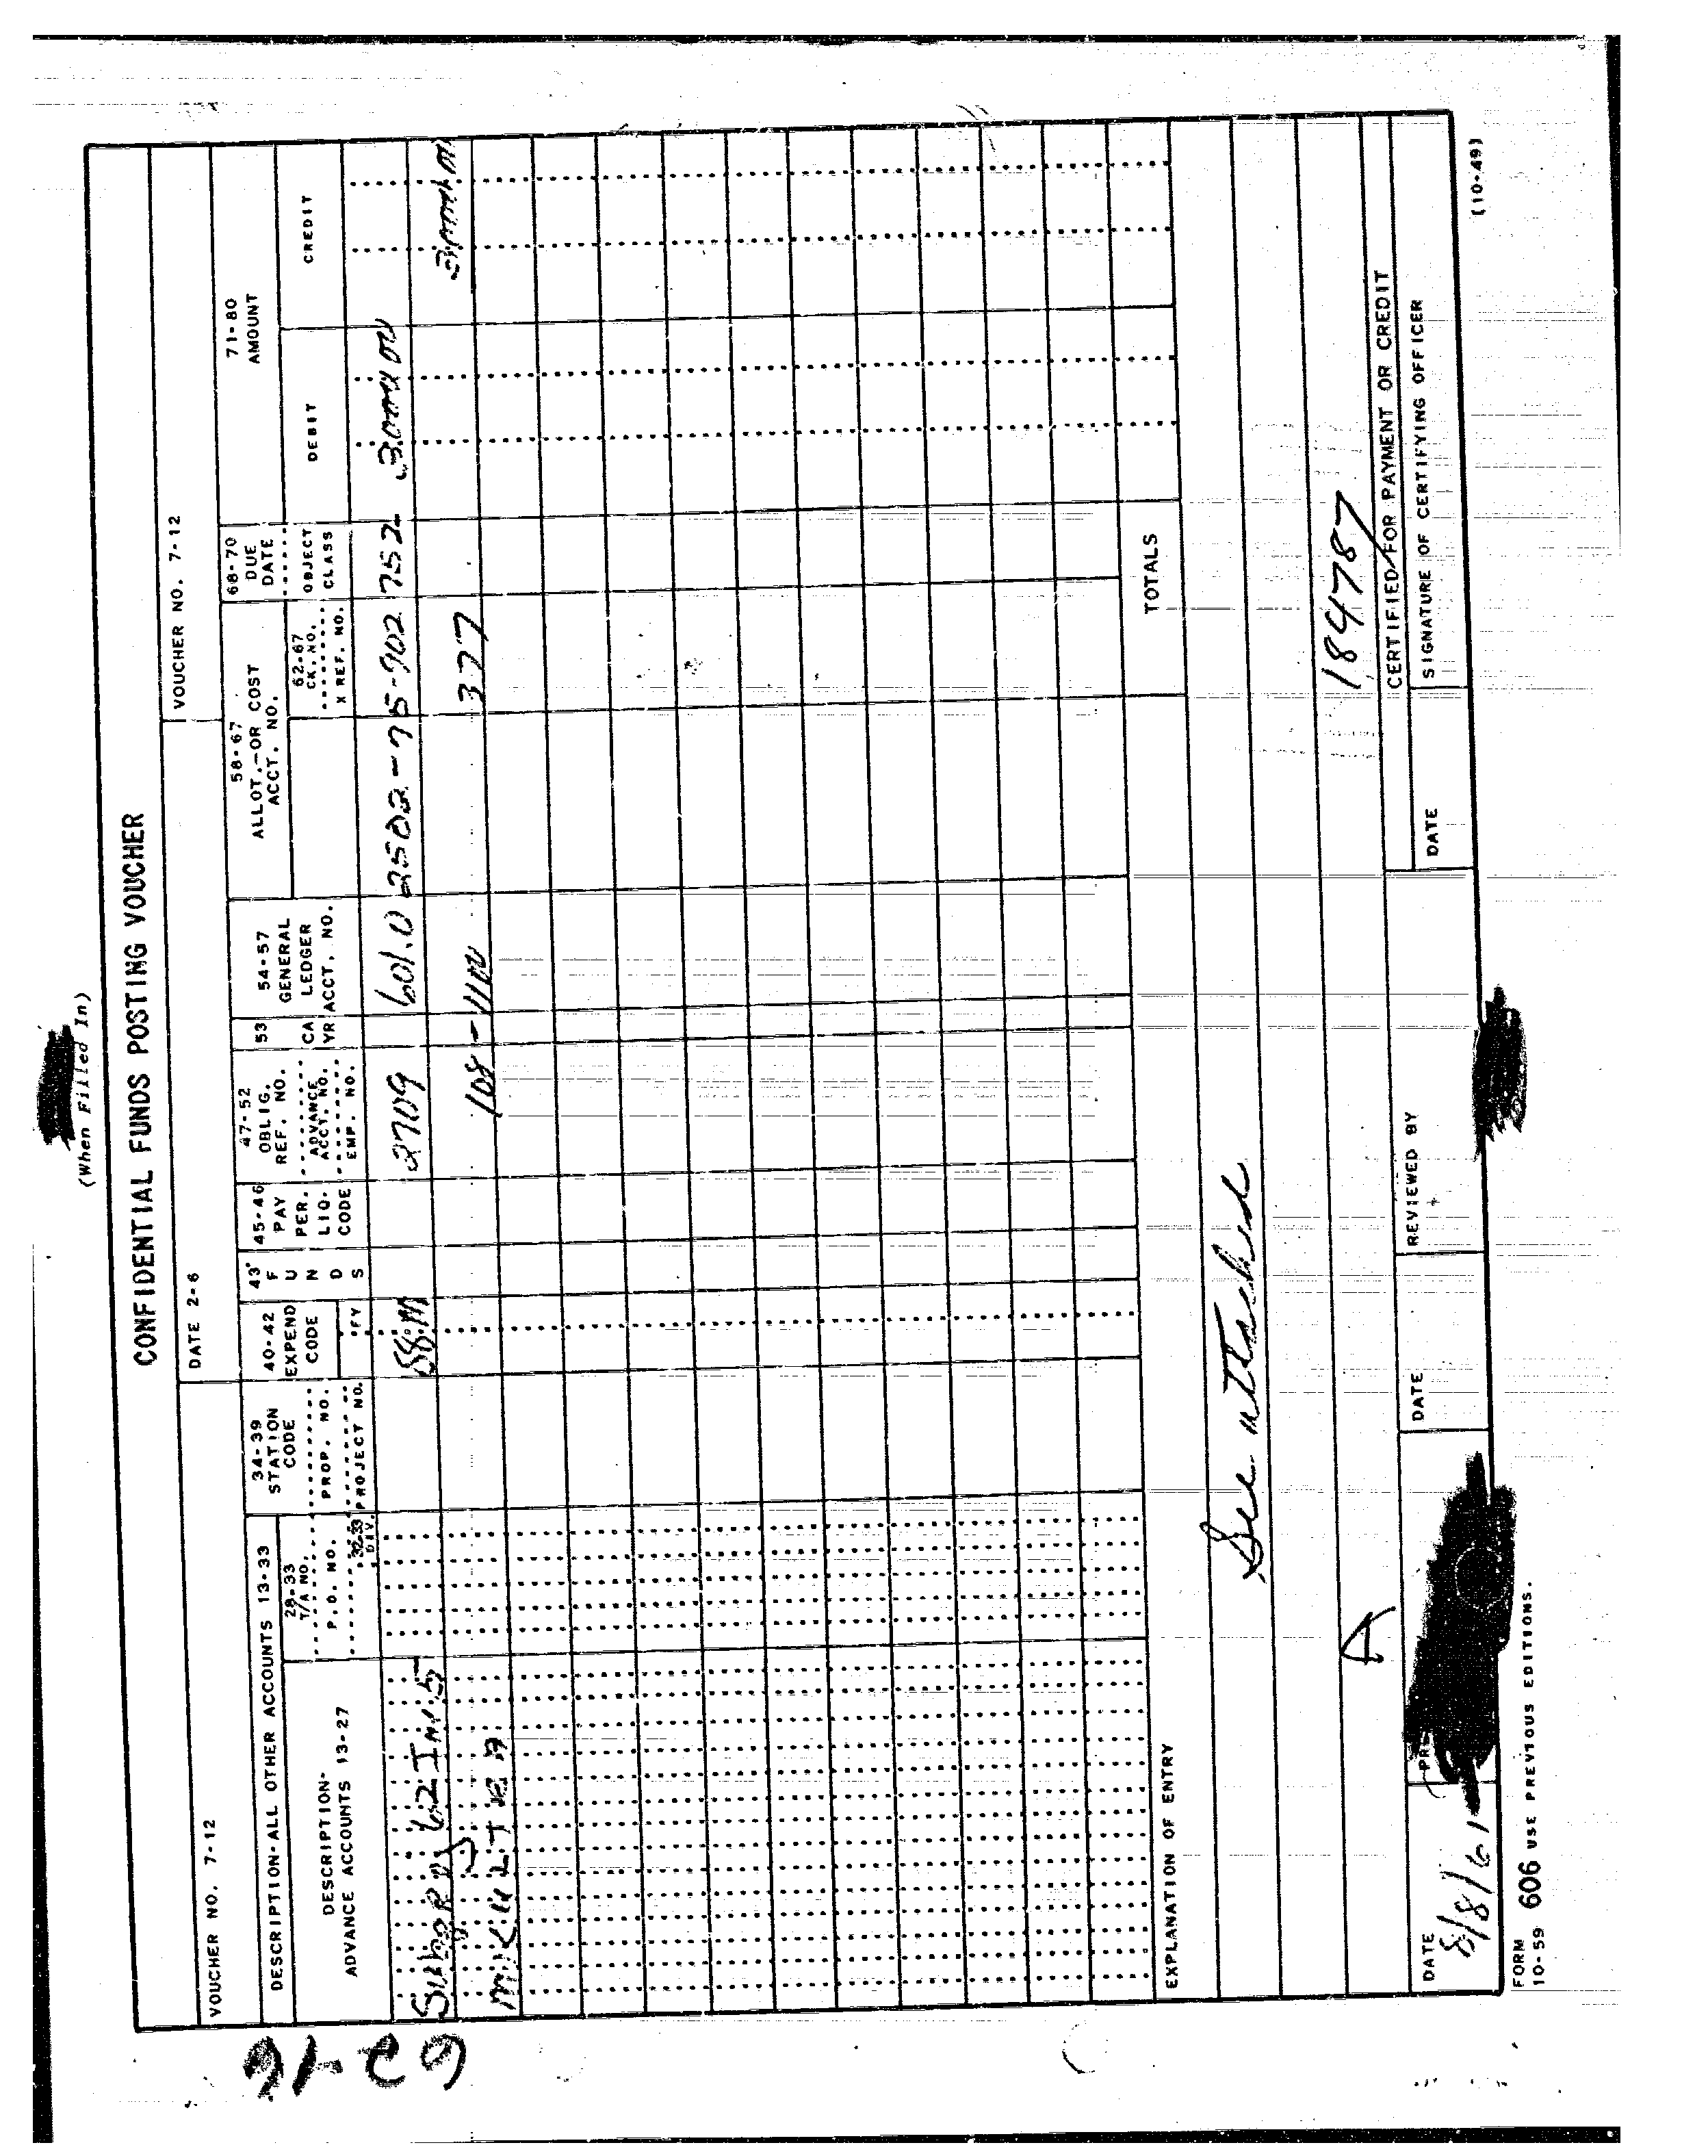 (When Filled In)
CONFIDENTIAL FUNDS POSTING VOUCHER
VOUCHER NO. 7-12 DATE 2-6 VOUCHER NO. 7-12
DESCRIPTION-ALL OTHER ACCOUNTS 13-33
DESCRIPTION-
ADVANCE ACCOUNTS 13-27
28-33
T/A NO.
P.O. NO.
32-33
DIV.
34-39
STATION
CODE
PROP. NO.
PROJECT NO.
40-42
EXPEND
CODE
FY
43
F
U
N
D
S
45-46
PAY
PER.
LIQ.
CODE
47-52
OBLIG.
REF. NO.
ADVANCE
ACCT. NO.
EMP. NO.
53
CA
YR
54-57
GENERAL
LEDGER
ACCT. NO.
58-67
ALLOT.-OR COST
ACCT. NO.
62-67
CK. NO.
X REF. NO.
68-70
DUE
DATE
OBJECT
CLASS
71-80
AMOUNT
DEBIT
CREDIT
62 Inv 5 2709 601.0 2502-75-902 752
108- 377
TOTALS
EXPLANATION OF ENTRY
See attached
A
184787
CERTIFIED FOR PAYMENT OR CREDIT
DATE DATE REVIEWED BY DATE SIGNATURE OF CERTIFYING OFFICER
8/8/61
FORM
10-59 606 USE PREVIOUS EDITIONS.
(10-49)
62-16